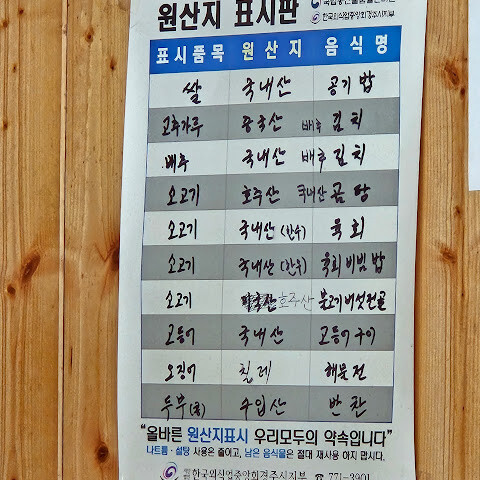 원산지 표시판
한국외식업중앙회경주시지부
표시품목 원산지 음식명
쌀 국내산 공기밥
고추가루 중국산 배추김치
배추 국내산 배추김치
소고기 호주산 국내산 곰탕
소고기 국내산(한우) 육회
소고기 국내산(한우) 육회비빔밥
소고기 호주산 불고기버섯전골
고등어 국내산 고등어구이
오징어 칠레 해물전
두부(콩) 수입산 반찬
"올바른 원산지표시 우리모두의 약속입니다"
나트륨·설탕 사용은 줄이고, 남은 음식물은 절대 재사용 하지 맙시다.
한국외식업중앙회경주시지부 ☎ 771-3901